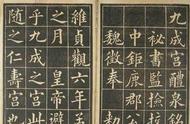 九成宮醴泉銘
祕書監撿挍
中鉅鹿郡公
魏徵奉勅
維貞觀六年
之月皇帝避
乎九成之宮
之仁壽宮